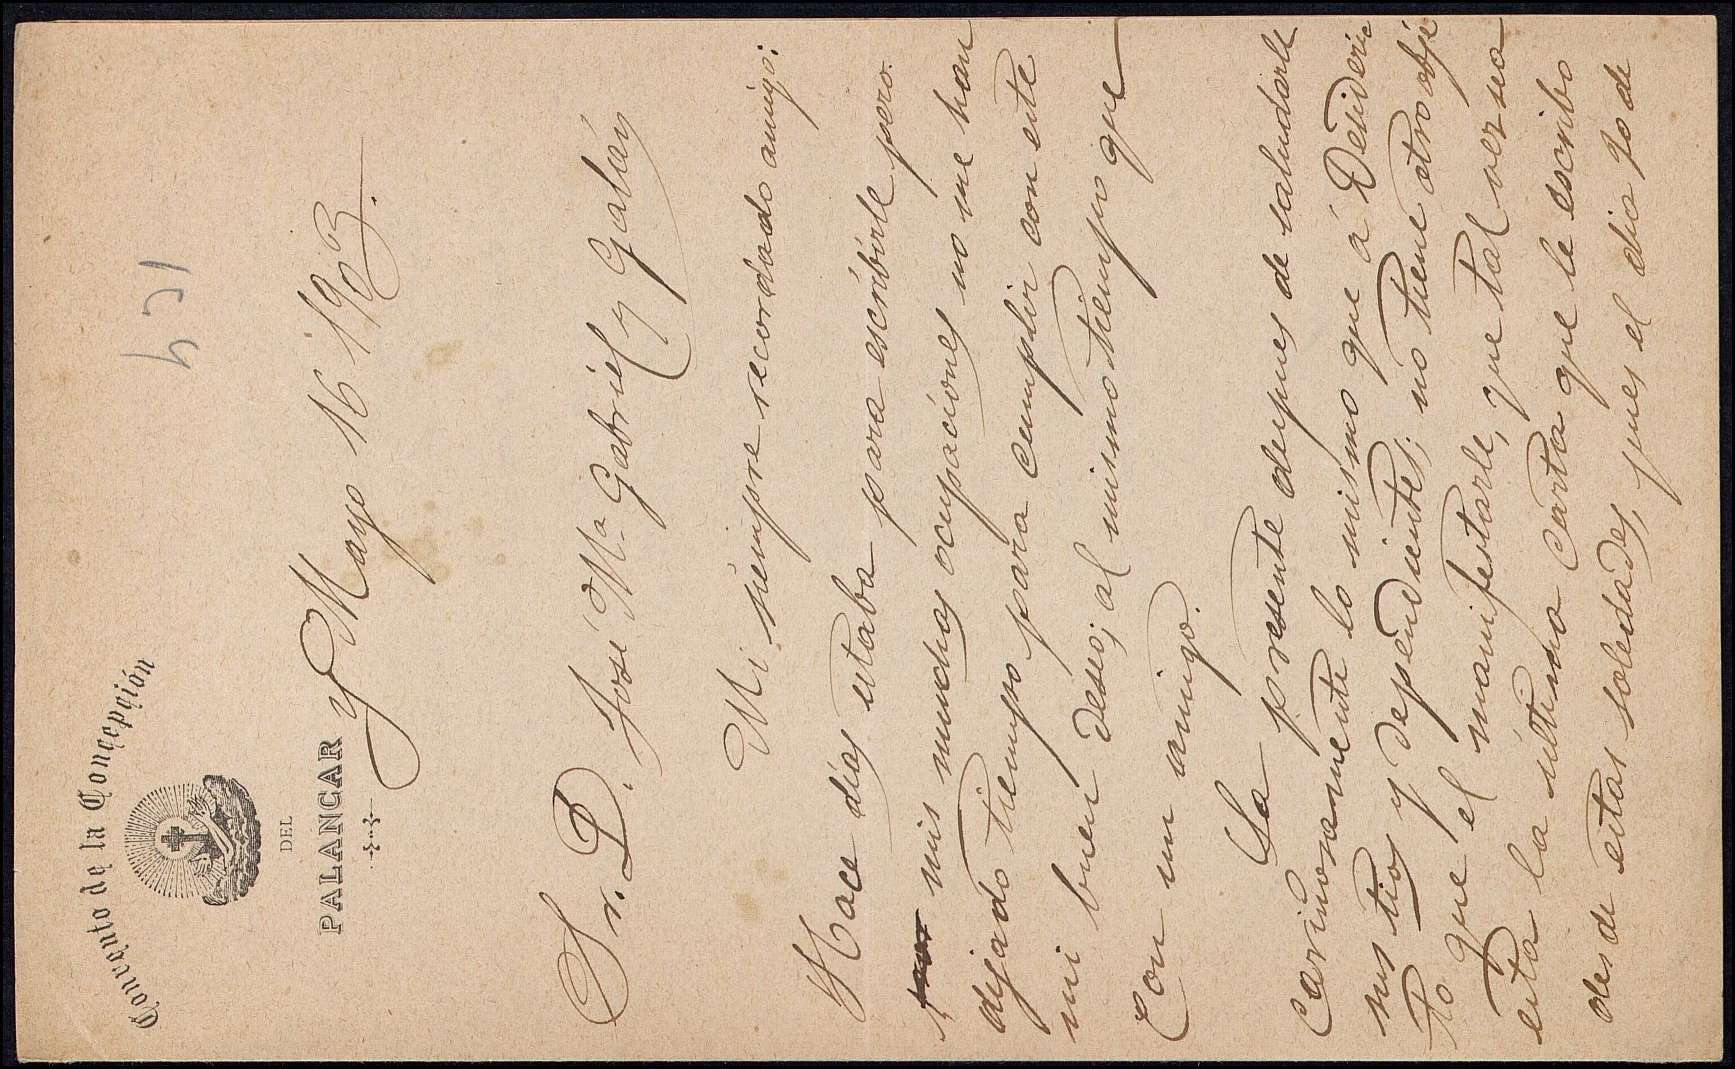 Convento de la Concepción
DEL
PALANCAR
y Mayo 16 1903.
Sr. D. José Mª Gabriel y Galán
Mi siempre recordado amigo:
Hace días estaba para escribirle pero
mis muchas ocupaciones no me han
dejado tiempo para cumplir con este
mi buen deseo; al mismo tiempo que
con un amigo.
La presente despues de saludarle
cariñosamente lo mismo que á Desideria
sus tios y dependientes; no tiene otro obje
to que el manifestarle, que tal vez sea
esta la última carta que le escribo
desde estas soledades, pues el dia 20 de